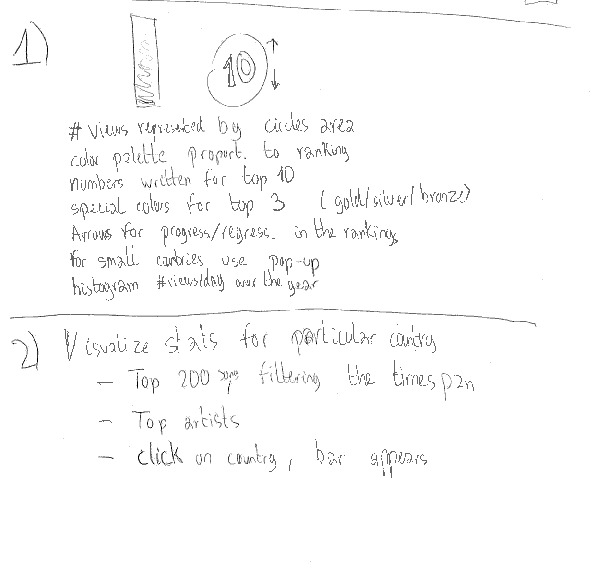 1)
10
# views represented by circles area
color palette proport. to ranking
numbers written for top 10
special colors for top 3 (gold/silver/bronze)
Arrows for progress/regress. in the rankings
for small countries use pop-up
histogram #views/day over the year
2) Visualize stats for particular country
- Top 200 songs filtering the timespan
- Top artists
- click on country, bar appears